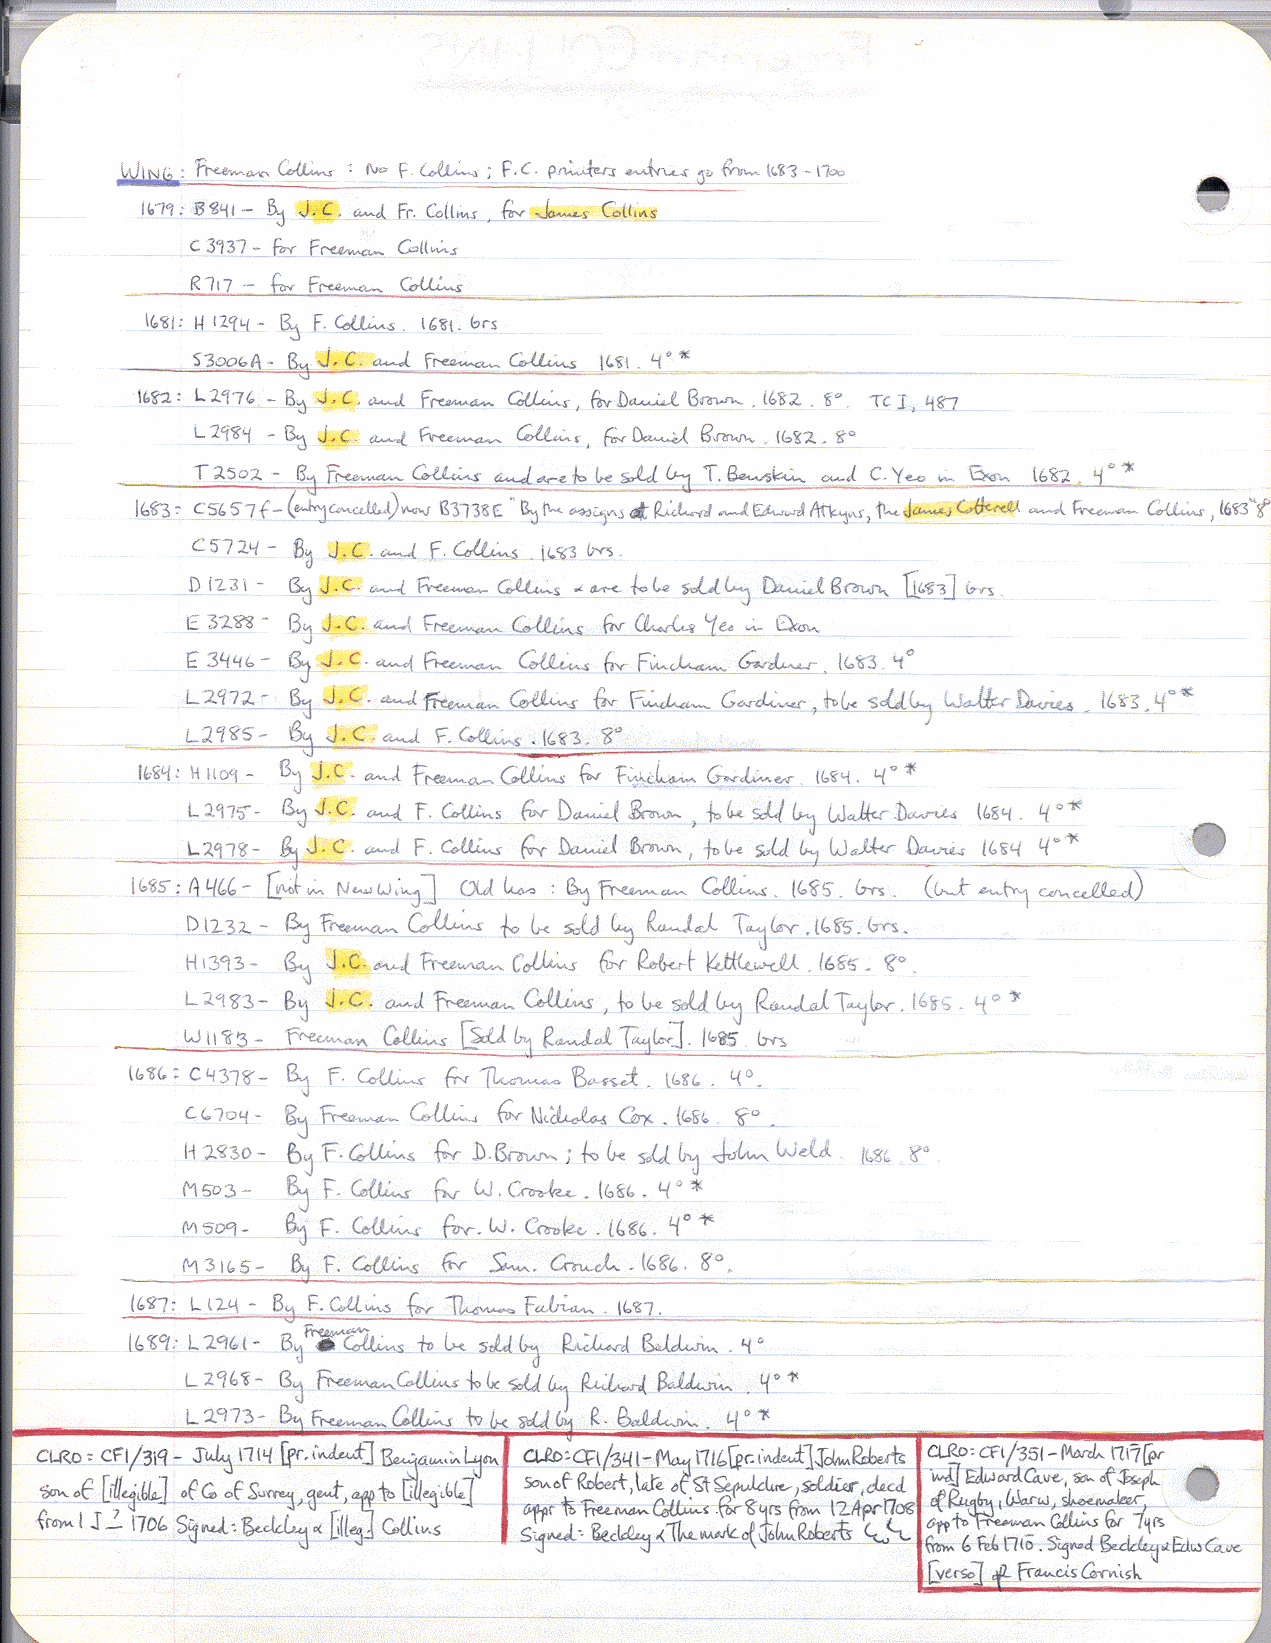 WING: Freeman Collins : No F. Collins ; F.C. printers entries go from 1683-1700
1679: B841 - By J.C. and Fr. Collins, for James Collins
C3937 - for Freeman Collins
R717 - for Freeman Collins
1681: H1294 - By F. Collins. 1681. brs
S3006A - By J.C. and Freeman Collins 1681. 4° *
1682: L2976 - By J.C. and Freeman Collins, for Daniel Brown. 1682. 8°. TC I, 487
L2984 - By J.C. and Freeman Collins, for Daniel Brown. 1682. 8°
T2502 - By Freeman Collins and are to be sold by T. Benskin and C. Yeo in Exon 1682. 4° *
1683: C5657f - (entry cancelled) now B3738E "By the assigns of Richard and Edward Atkyns, the James Cotterell and Freeman Collins, 1683" 8°
C5724 - By J.C. and F. Collins. 1683 brs.
D1231 - By J.C. and Freeman Collins & are to be sold by Daniel Brown [1683] brs.
E3288 - By J.C. and Freeman Collins for Charles Yeo in Exon
E3446 - By J.C. and Freeman Collins for Fincham Gardiner. 1683. 4°
L2972 - By J.C. and Freeman Collins for Fincham Gardiner, to be sold by Walter Davies. 1683. 4° *
L2985 - By J.C. and F. Collins. 1683. 8°
1684: H1109 - By J.C. and Freeman Collins for Fincham Gardiner. 1684. 4° *
L2975 - By J.C. and F. Collins for Daniel Brown, to be sold by Walter Davies 1684. 4° *
L2978 - By J.C. and F. Collins for Daniel Brown, to be sold by Walter Davies 1684 4° *
1685: A466 - [not in New Wing] Old has: By Freeman Collins. 1685. brs. (but entry cancelled)
D1232 - By Freeman Collins to be sold by Randal Taylor. 1685. brs.
H1393 - By J.C. and Freeman Collins for Robert Kettlewell. 1685. 8°.
L2983 - By J.C. and Freeman Collins, to be sold by Randal Taylor. 1685. 4° *
W1183 - Freeman Collins [Sold by Randal Taylor]. 1685 brs
1686: C4378 - By F. Collins for Thomas Basset. 1686. 4°.
C6704 - By Freeman Collins for Nicholas Cox. 1686. 8°.
H2830 - By F. Collins for D. Brown; to be sold by John Weld. 1686. 8°.
M503 - By F. Collins for W. Crooke. 1686. 4° *
M509 - By F. Collins for. W. Crooke. 1686. 4° *
M3165 - By F. Collins for Sam. Crouch. 1686. 8°.
1687: L124 - By F. Collins for Thomas Fabian. 1687.
1689: L2961 - By Freeman Collins to be sold by Richard Baldwin. 4°
L2968 - By Freeman Collins to be sold by Richard Baldwin. 4° *
L2973 - By Freeman Collins to be sold by R. Baldwin. 4° *
CLRO: CF1/319 - July 1714 [pr. indent] Benjamin Lyon
son of [illegible] of Co of Surrey, gent, app to [illegible]
from 1 J ? 1706 Signed: Beckley & [illeg.] Collins
CLRO: CF1/341 - May 1716 [pr. indent] John Roberts
son of Robert, late of St Sepulchre, soldier, decd
appr to Freeman Collins for 8 yrs from 12 Apr 1708
Signed: Beckley & The mark of John Roberts
CLRO: CF1/351 - March 1717 [pr
ind] Edward Cave, son of Joseph
of Rugby, Warw, shoemaker,
app to Freeman Collins for 7 yrs
from 6 Feb 1710. Signed Beckley & Edw Cave
[verso] Francis Cornish